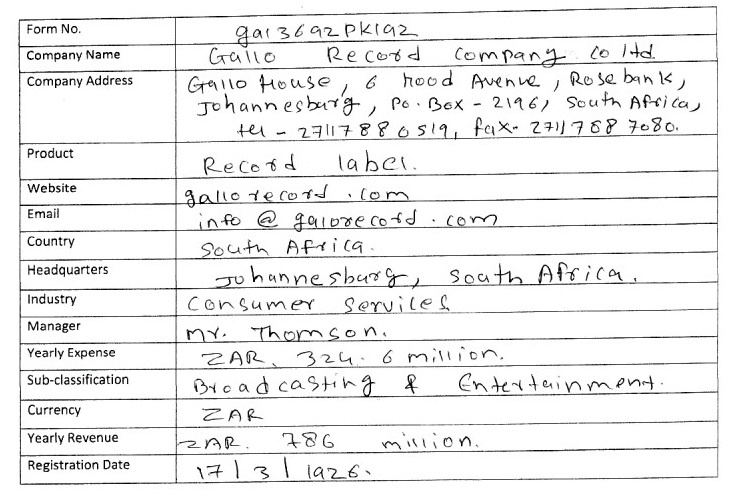 Form No. ga13692PK192
Company Name Gallo Record Company co ltd
Company Address Gallo House, 6 hood Avenue, Rosebank,
Johannesburg, Po. Box - 2196, South Africa,
tel - 27117880519, fax- 27117887080.
Product Record label.
Website gallorecord.com
Email info @ galorecord.com
Country South Africa.
Headquarters Johannesburg, South Africa.
Industry Consumer Services
Manager Mr. Thomson.
Yearly Expense ZAR. 324.6 million.
Sub-classification Broadcasting & Entertainment.
Currency ZAR
Yearly Revenue ZAR. 786 million.
Registration Date 17/3/1926.